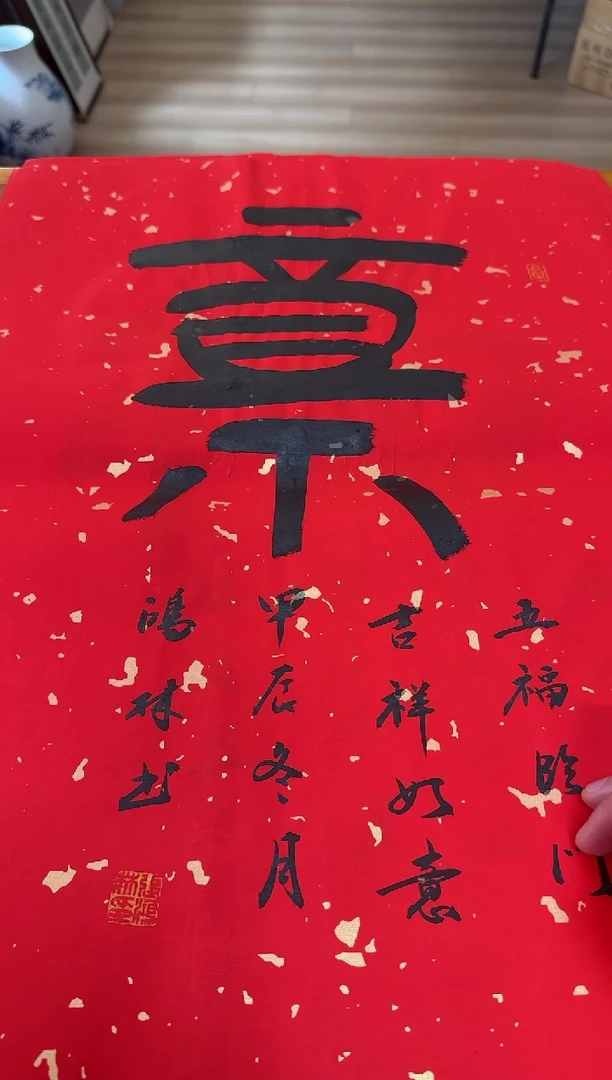 五福臨门
吉祥如意
甲辰冬月
鴻林书